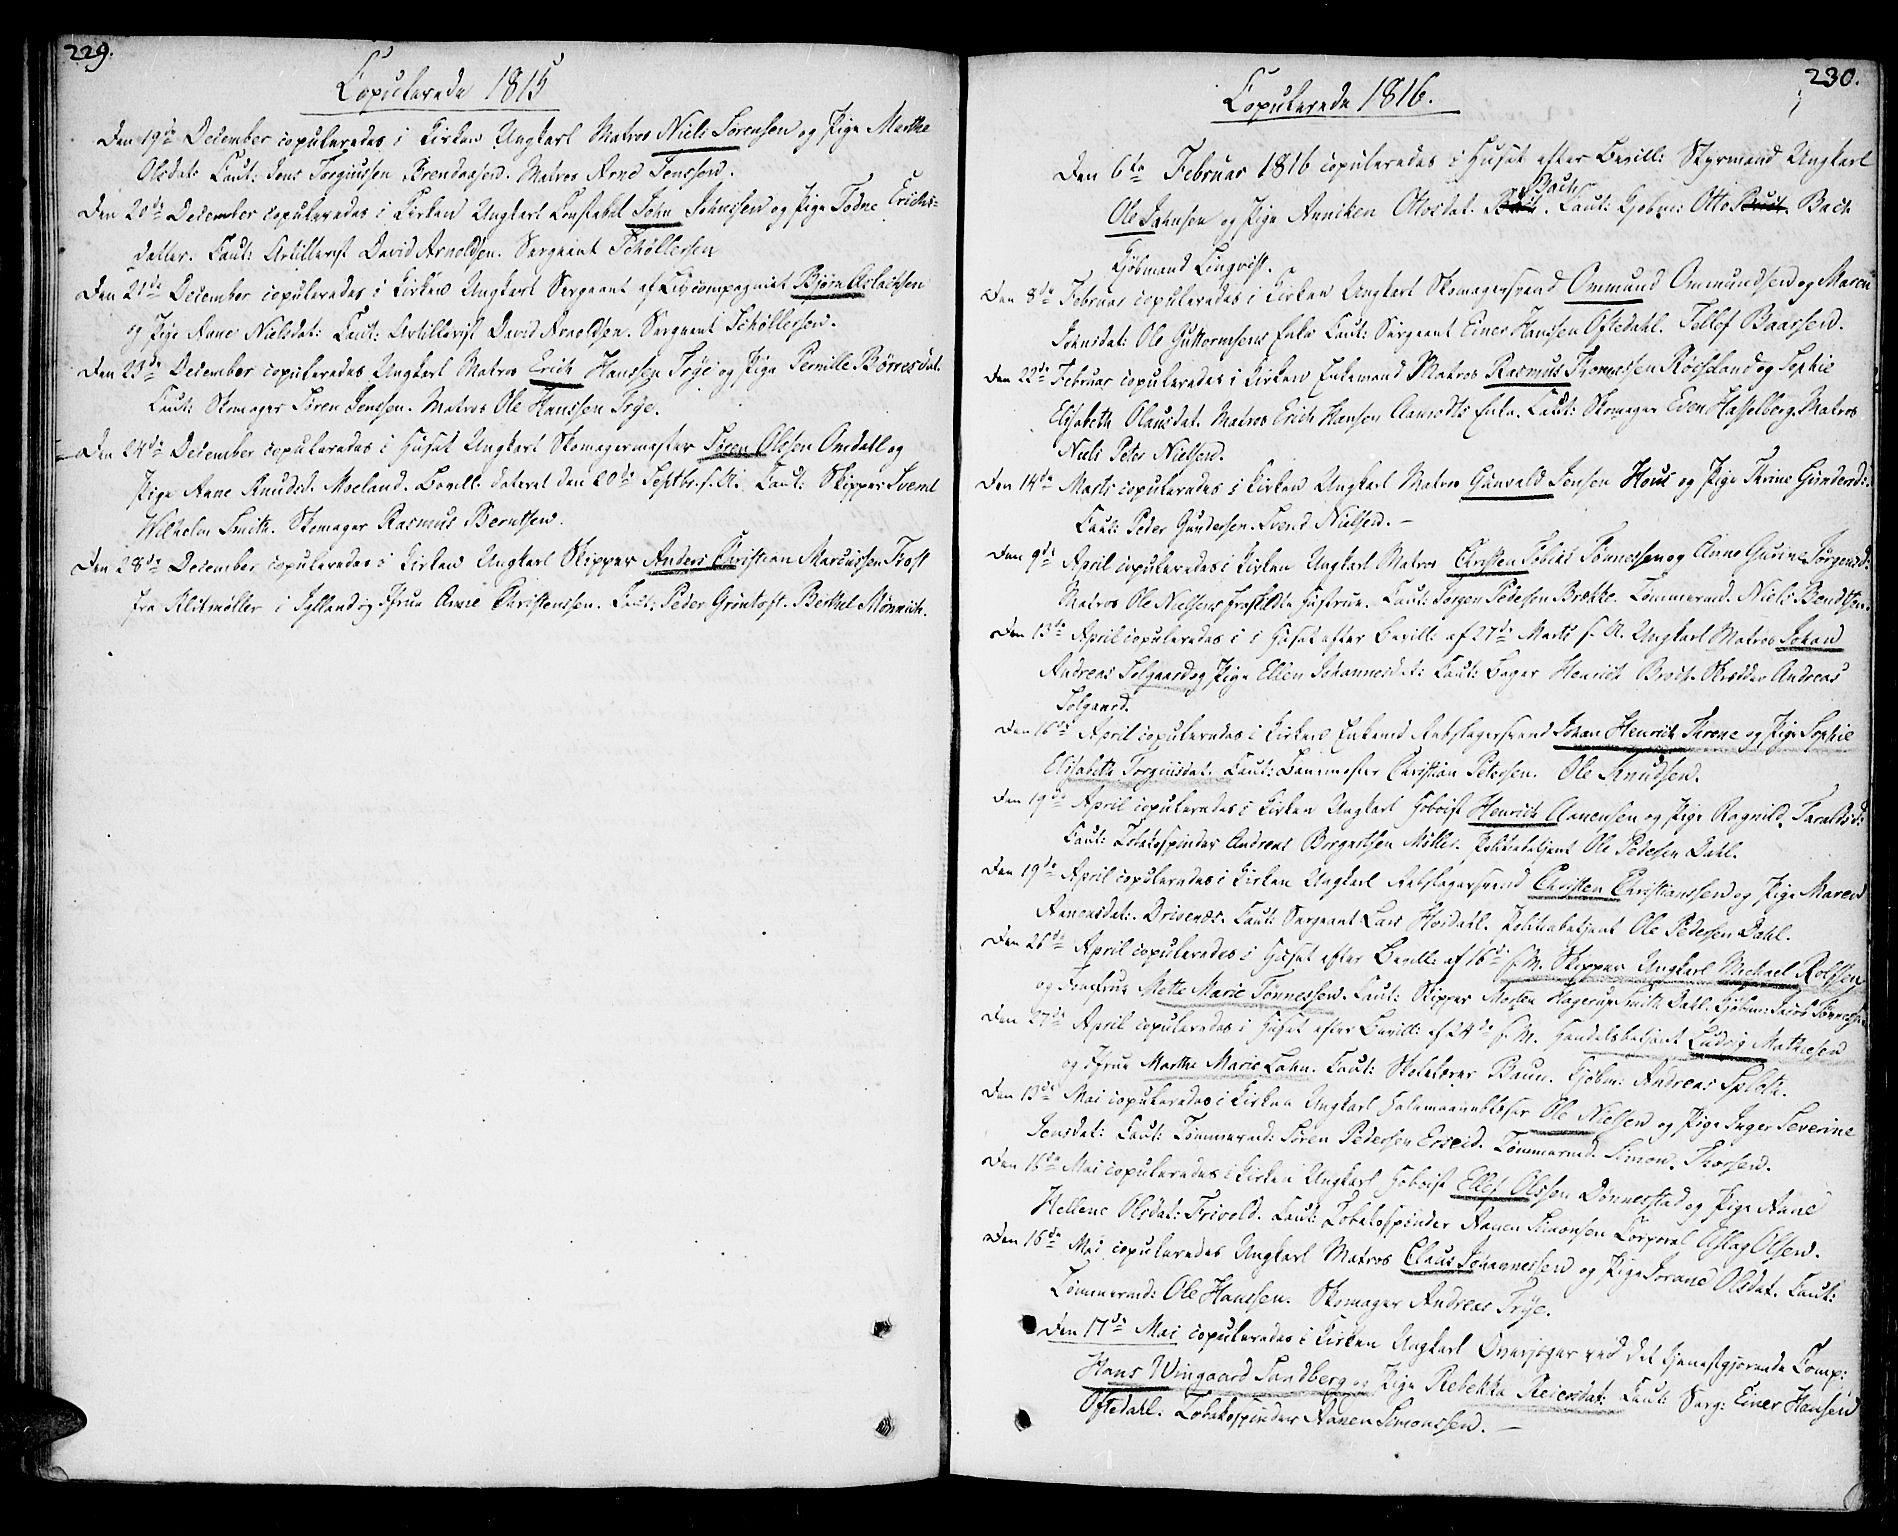 229.
Copulerede 1815
Den 19de December copuleredes i Kirken Ungkarl Matros Niels Sørensen og Pige Marthe
Olsdat: Caut: Jens Torgiussen Brendaasen. Matros Arne Jenssen.
Den 20de December copuleredes i Kirken Ungkarl Constabel John Johnssen og Pige Todne Erichs-
datter. Caut: Artillerist David Arnoldsen. Sergeant Schøllersen
Den 21de December copuleredes i Kirken Ungkarl Sergeant af Livcompagniet Bjørn Aslachsen
og Pige Anne Nielsdat: Caut: Artillerist David Arnoldsen. Sergeant Schøllersen.
Den 23de December copuleredes Ungkarl Matros Erich Hanssen Trye og Pige Pernille Børresdat.
Caut: Skomager Søren Jenssen. Matros Ole Hanssen Trye.
Den 24de December copuleredes i Huset Ungkarl Skomagermester Søren Olesen Omdall og
Pige Anne Knudsd. Moeland. Bevill. dateret den 20de Septbr. s. A. Caut: Skipper Svend
Wilhelm Smith. Skomager Rasmus Berntsen.
Den 28de December copuleredes i Kirken Ungkarl Skipper Anders Christian Marcussen Frost
fra Klitmøller i Jylland og Jfrue Anne Christenssen. Caut: Peder Grøntoft. Berthel Mønnich.
230.
Copulerede 1816.
Den 6te Februar 1816 copuleredes i Huset efter Bevill: Styrmand Ungkarl
Bach
Ole Johnsen og Pige Anniken Ottosdat. Caut: Kjøbm: Otto Bach
Kjøbmand Linqvist.
Den 8de Februar copuleredes i Kirken Ungkarl Skomagersvend Ommund Ommundsen og Maren
Johnsdat: Ole Guttormsens Enke Caut: Sergeant Einer Hanssen Oftedahl. Tellef Baarsen.
Den 22de Februar copuleredes i Kirken Enkemand Matros Rasmus Thomessen Røiseland og Sophie
Elisabeth Olausdat. Matros Erich Hansen Aanrodts Enke. Caut: Skomager Even Hasselberg. Matros
Niels Peter Nielsen.
Den 14de Marti copuleredes i Kirken Ungkarl Matros Gunvald Jensen Hous og Pige Thrine Gundersd:
Caut: Peder Gundersen. Svend Nielsen. —
Den 9de April copuleredes i Kirken Ungkarl Matros Christen Tobias Tønnessen og Anne Gurine Jørgensd:
Matros Ole Nielsens fraskildte Hustrue. Caut: Jørgen Pedersen Brække. Tømmermd. Niels Bendtsen.
Den 13de April copuleredes i Huset efter Bevill: af 27de Marti s. A. Ungkarl Matros Johan
Andreas Solgaard og Pige Ellen Johannesdat: Caut: Bager Henrich Broch. Skrædder Andreas
Solgaard.
Den 16de April copuleredes i Kirken Enkemd Rebslagersvend Johan Henrich Throne og Pige Sophie
Elisabeth Torgiusdat. Caut: Banemester Christian Petersen. Ole Knudsen.
Den 19de April copuleredes i Kirken Ungkarl Hoboist Henrich Aanensen og Pige Ragnild Taraldsd:
Caut: Tobakspinder Andreas Borgertsen Møller. Politiebetjent Ole Pedersen Dahl.
Den 19de April copuleredes i Kirken Ungkarl Rebslagersvend Christen Christianssen og Pige Maren
Aanensdat: Drivenes. Caut: Sergeant Lars Hosdahl. Politiebetjent Ole Pedersen Dahl.
Den 26de April copuleredes i Huset efter Bevill: af 16de s. M. Skipper Ungkarl Michael Rolfsen
og Jomfrue Mette Marie Tønnessen. Caut: Skipper Morten Hagerup Smith Dahl. Kjøbm: Jacob Tønnessen
Den 27de April copuleredes i Huset efter Bevill: af 24de s. M. Handelsbetjent Ludvig Mathiesen
og Jfrue Marthe Marie Lahn. Caut: Skolelærer Baun. Kjøbm: Andreas Isplat.
Den 13de Mai copuleredes i Kirken Ungkarl Halvmaaneblæser Ole Nielsen og Pige Inger Severine
Jensdat: Caut: Tømmermd: Søren Pedersen Erseid. Tømmermd. Simon Thorsen.
Den 16de Mai copuleredes i Kirken Ungkarl Hoboist Ellef Olssen Dønnestad og Pige Anne
Hellene Olsdat: Frivold. Caut: Tobakspinder Aanen Simonsen Corporal Aslag Olsen.
Den 16de Mai copuleredes Ungkarl Matros Claus Johannessen og Pige Torane Olsdat. Caut:
Tømmermd: Ole Hanssen. Skomager Andreas Trye.
Den 17de Mai copuleredes i Kirken Ungkarl Overjæger ved det tjenestgjørende Comp:
Hans Wingaard Sandberg og Pige Rebekka Reiersdat: Caut: Serg: Einer Hansen
Oftedahl. Tobakspinder Aanen Simonssen. —